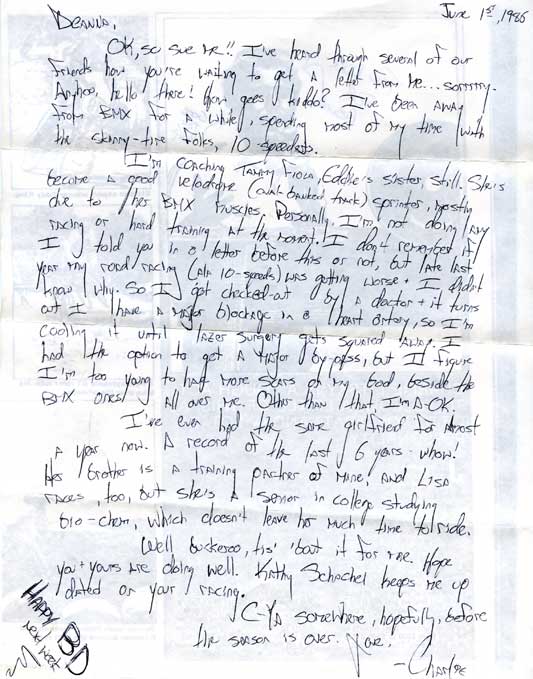 June 1st, 1986
Deanna,
OK, so sue me!! I've heard through several of our
friends how you're waiting to get a letter from me... sorrrrry.
Anyhoo, hello there! How goes kiddo? I've been away
from BMX for a while, spending most of my time with
the skinny-tire folks, 10-speeders.
I'm coaching Tammy Fiola, Eddie's sister, still. She's
become a good velodrome (oval banked track) sprintor, mostly
due to her BMX muscles. Personally, I'm not doing any
racing or hard training at the moment. I don't remember if
I told you in a letter before this or not, but late last
year my road racing (ala 10-speeds) was getting worse + I didn't
know why. So I got checked-out by a doctor + it turns
out I have a major blockage in a heart artery, so I'm
cooling it until lazer surgery gets squared away. I
had the option to get a major by-pass, but I figure
I'm too young to have more scars on my bod, beside the
BMX ones! All over me. Other than that, I'm A-OK.
I've even had the same girlfriend for almost
a year now. A record of the last 6 years - whow!
Her brother is a training partner of mine, and Lisa
races, too, but she's a senior in college studying
bio-chem, which doesn't leave her much time to ride.
Well buckeroo, tis' 'bout it for me. Hope
you + yours are doing well. Kathy Schachel keeps me up
dated on your racing.
C-Ya somewhere, hopefully, before
the season is over. Love,
- Charlie
HAPPY
BD
next week